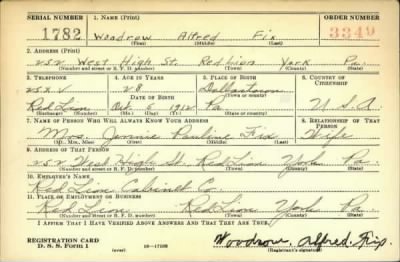 SERIAL NUMBER 1. NAME (Print) ORDER NUMBER
1782 Woodrow Alfred Fix 3349
(First) (Middle) (Last)
2. ADDRESS (Print)
252 West High St. Red Lion York Pa.
(Number and street or R. F. D. number) (Town) (County) (State)
3. TELEPHONE 4. AGE IN YEARS 5. PLACE OF BIRTH 6. COUNTRY OF CITIZENSHIP
25x V 28 Dallastown
DATE OF BIRTH (Town or county)
Red Lion Oct 5 1912 Pa U.S.A.
(Exchange) (Number) (Mo.) (Day) (Yr.) (State or country)
7. NAME OF PERSON WHO WILL ALWAYS KNOW YOUR ADDRESS 8. RELATIONSHIP OF THAT PERSON
Mrs. Jennie Pauline Fix Wife
(Mr., Mrs., Miss) (First) (Middle) (Last)
9. ADDRESS OF THAT PERSON
252 West High St. Red Lion York Pa.
(Number and street or R. F. D. number) (Town) (County) (State)
10. EMPLOYER'S NAME
Red Lion Cabinet Co.
11. PLACE OF EMPLOYMENT OR BUSINESS
Red Lion Red Lion York Pa.
(Number and street or R. F. D. number) (Town) (County) (State)
I AFFIRM THAT I HAVE VERIFIED ABOVE ANSWERS AND THAT THEY ARE TRUE.
REGISTRATION CARD
D. S. S. Form 1 (over) 16-17105 Woodrow Alfred Fix
(Registrant's signature)